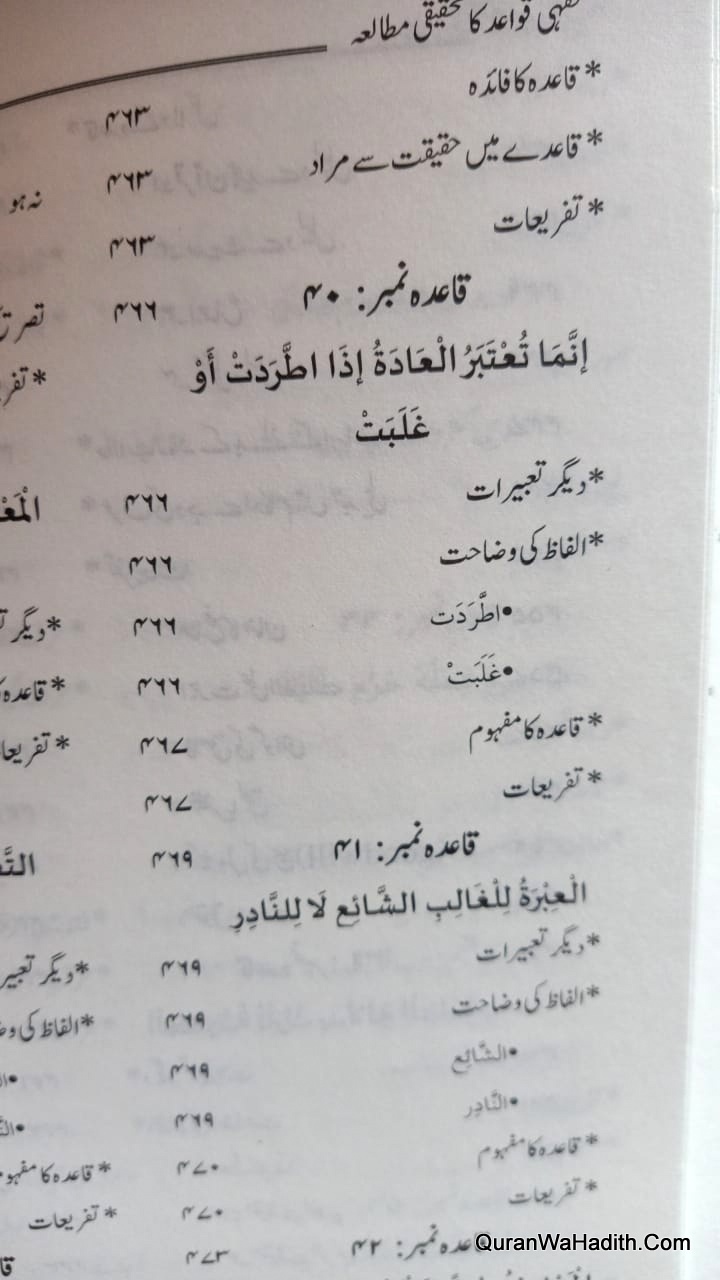 فقہی قواعد کا تحقیقی مطالعہ
* قاعدہ کا فائدہ ۴۶۳
* قاعدے میں حقیقت سے مراد ۴۶۳
* تفریعات ۴۶۳
قاعدہ نمبر: ۴۰ ۴۶۶
إِنَّمَا تُعْتَبَرُ الْعَادَةُ إِذَا اطَّرَدَتْ أَوْ
غَلَبَتْ
* دیگر تعبیرات ۴۶۶
* الفاظ کی وضاحت ۴۶۶
• اطَّرَدَت ۴۶۶
• غَلَبَتْ ۴۶۶
* قاعدہ کا مفہوم ۴۶۷
* تفریعات ۴۶۷
قاعدہ نمبر: ۴۱ ۴۶۹
الْعِبْرَةُ لِلْغَالِبِ الشَّائِعِ لَا لِلنَّادِرِ
* دیگر تعبیرات ۴۶۹
* الفاظ کی وضاحت ۴۶۹
• الشَّائِع ۴۶۹
• النَّادِر ۴۶۹
* قاعدہ کا مفہوم ۴۷۰
* تفریعات ۴۷۰
قاعدہ نمبر: ۴۲ ۴۷۳
نہ ہو
* دیگر
* قاعدہ
* دیگر
* الفاظ کی
* قاعدہ کا مفہوم
* تفریعات
QuranWaHadith.Com